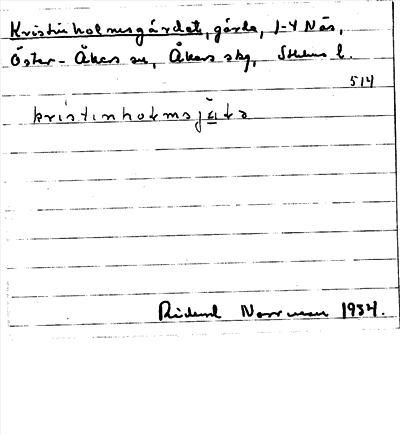 Kristinholmsgärdet, gärde, 1-4 Näs,
Öster-Åkers sn, Åkers skg, Sthlms l.
514
kristinholmsjä̀ɖə
Rickard Norrman 1934.